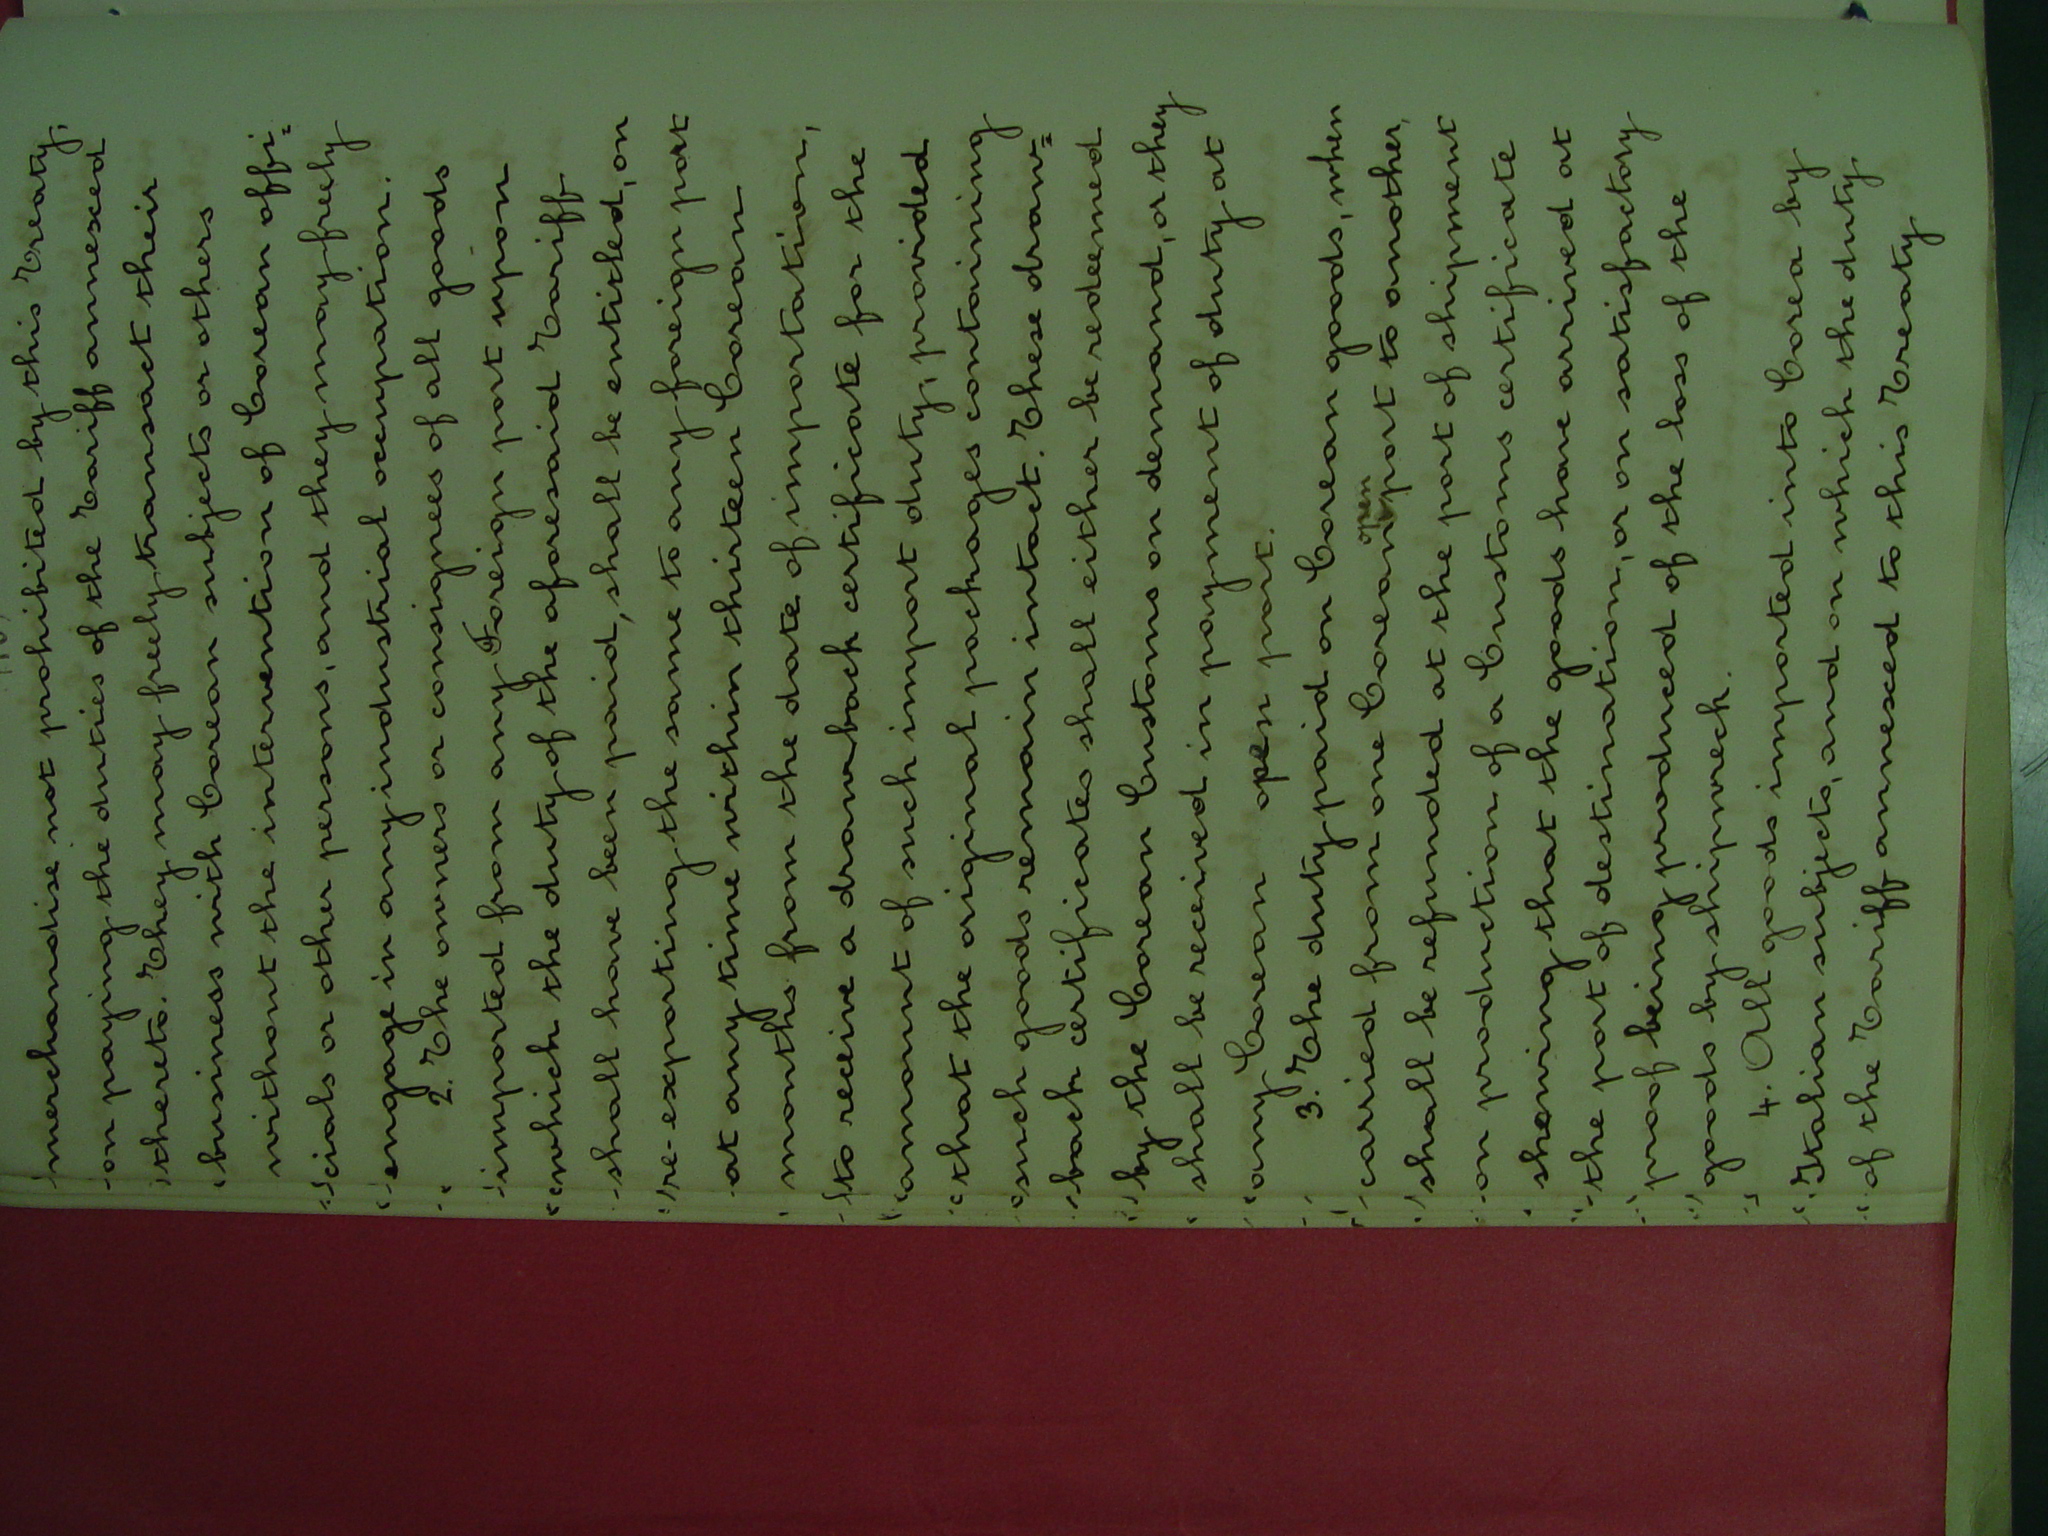 merchandise not prohibited by this Treaty,
on paying the duties of the Tariff annexed
thereto. They may freely transact their
business with Corean subjects or others
without the intervention of Corean offi=
cials or other persons, and they may freely
engage in any industrial occupation.
2. The owners or consignees of all goods
imported from any Foreign port upon
which the duty of the aforesaid Tariff
shall have been paid, shall be entitled, on
re-exporting the same to any foreign port
at any time within thirteen Corean
months from the date of importation,
to receive a drawback certificate for the
amount of such import duty, provided
that the original packages containing
such goods remain intact. These draw=
back certificates shall either be redeemed
by the Corean Customs on demand, or they
shall be received in payment of duty at
any Corean open port.
3. The duty paid on Corean goods, when
carried from one Corean open port to another,
shall be refunded at the port of shipment
on production of a Customs certificate
showing that the goods have arrived at
the port of destination, or on satisfactory
proof being produced of the loss of the
goods by shipwreck.
4. All goods imported into Corea by
Italian subjects, and on which the duty
of the Tariff annexed to this Treaty